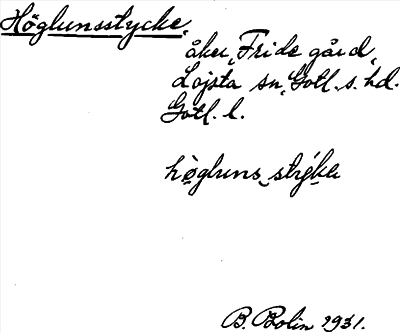 Höglunsstycke,
åker, Fride gård,
Lojsta sn, Gotl. s. hd.
Gotl. l.
hö̀gluns_stýka
B. Bolin 1931.